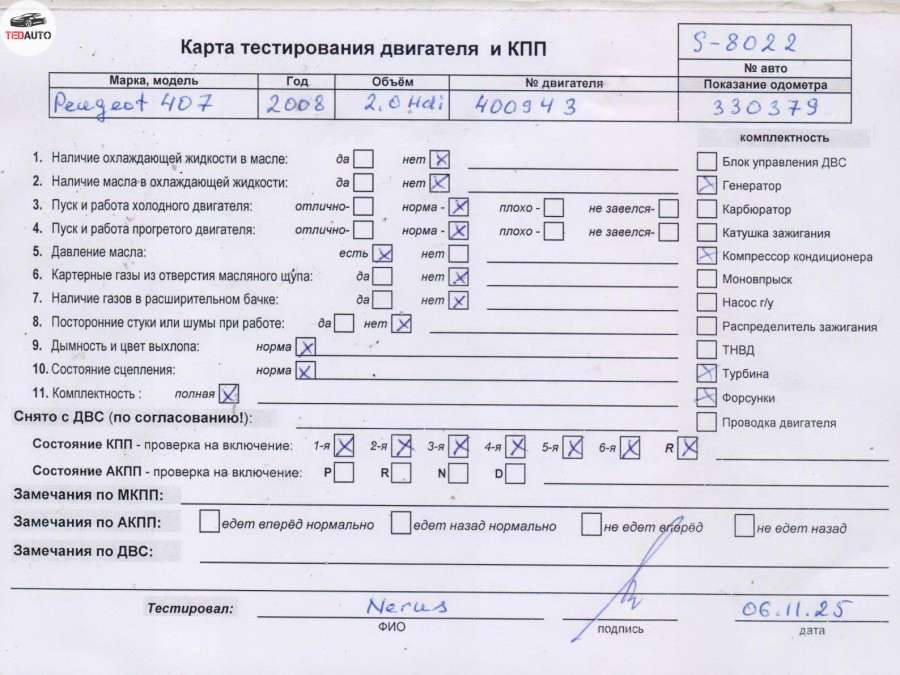 TEDAUTO
Карта тестирования двигателя и КПП
S-8022
№ авто
Марка, модель Год Объём № двигателя Показание одометра
Peugeot 407 2008 2.0 Hdi 400943 330379
комплектность
1. Наличие охлаждающей жидкости в масле: да нет
Блок управления ДВС
2. Наличие масла в охлаждающей жидкости: да нет
Генератор
3. Пуск и работа холодного двигателя: отлично- норма - плохо - не завелся-
Карбюратор
4. Пуск и работа прогретого двигателя: отлично- норма - плохо - не завелся-
Катушка зажигания
5. Давление масла: есть нет
Компрессор кондиционера
6. Картерные газы из отверстия масляного щупа: да нет
Моновпрыск
7. Наличие газов в расширительном бачке: да нет
Насос г/у
8. Посторонние стуки или шумы при работе: да нет
Распределитель зажигания
9. Дымность и цвет выхлопа: норма
ТНВД
10. Состояние сцепления: норма
Турбина
11. Комплектность : полная
Форсунки
Снято с ДВС (по согласованию!):
Проводка двигателя
Состояние КПП - проверка на включение: 1-я 2-я 3-я 4-я 5-я 6-я R
Состояние АКПП - проверка на включение: P R N D
Замечания по МКПП:
Замечания по АКПП: едет вперёд нормально едет назад нормально не едет вперёд не едет назад
Замечания по ДВС:
Тестировал: Nerus 06.11.25
ФИО подпись дата